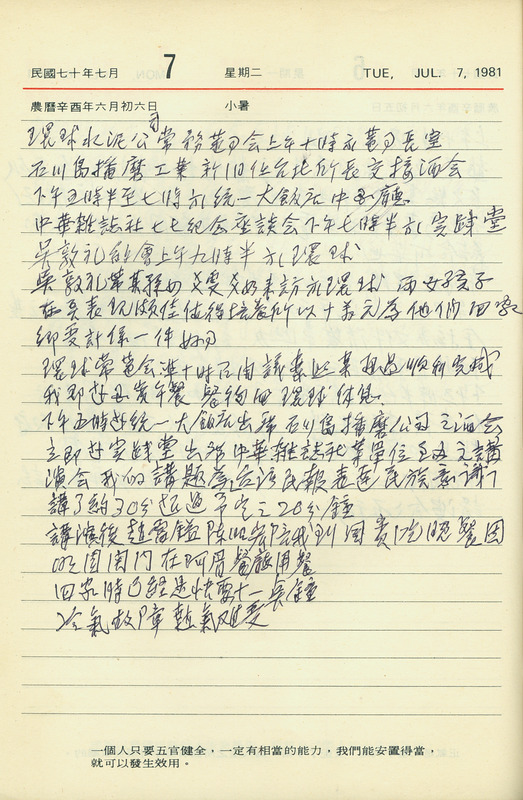 民國七十年七月 7 星期二 TUE, JUL. 7, 1981
農曆辛酉年六月初六日 小暑
環球水泥公司常務董事會上午十時於董事長室
石川島播磨工業新舊任台北所長交接酒會
下午五時半至七時於統一大飯店中國廳
中華雜誌社七七紀念座談會下午七時半於實踐堂
吳敦礼 會上午九時半於環球
吳敦礼 来訪於環球 兩女孩子
表現頗佳值得 所以十美元為他們
件
環球常董會準十時召開議案 通過順利完成
我即赴 午餐 餐後回環球休息
下午五時赴統一大飯店出席石川島播磨公司之酒會
立即赴實踐堂出席中華雜誌社 單位 之講
演會 我的講題為 民報表達民族意識
講了約30分 超過 定之20分鐘
講演後 我到國賓 晚餐因
關門在阿 餐廳用餐
回家時已經是快要十一點鐘
冷氣故障熱氣難受
一個人只要五官健全，一定有相當的能力，我們能安置得當，
就可以發生效用。